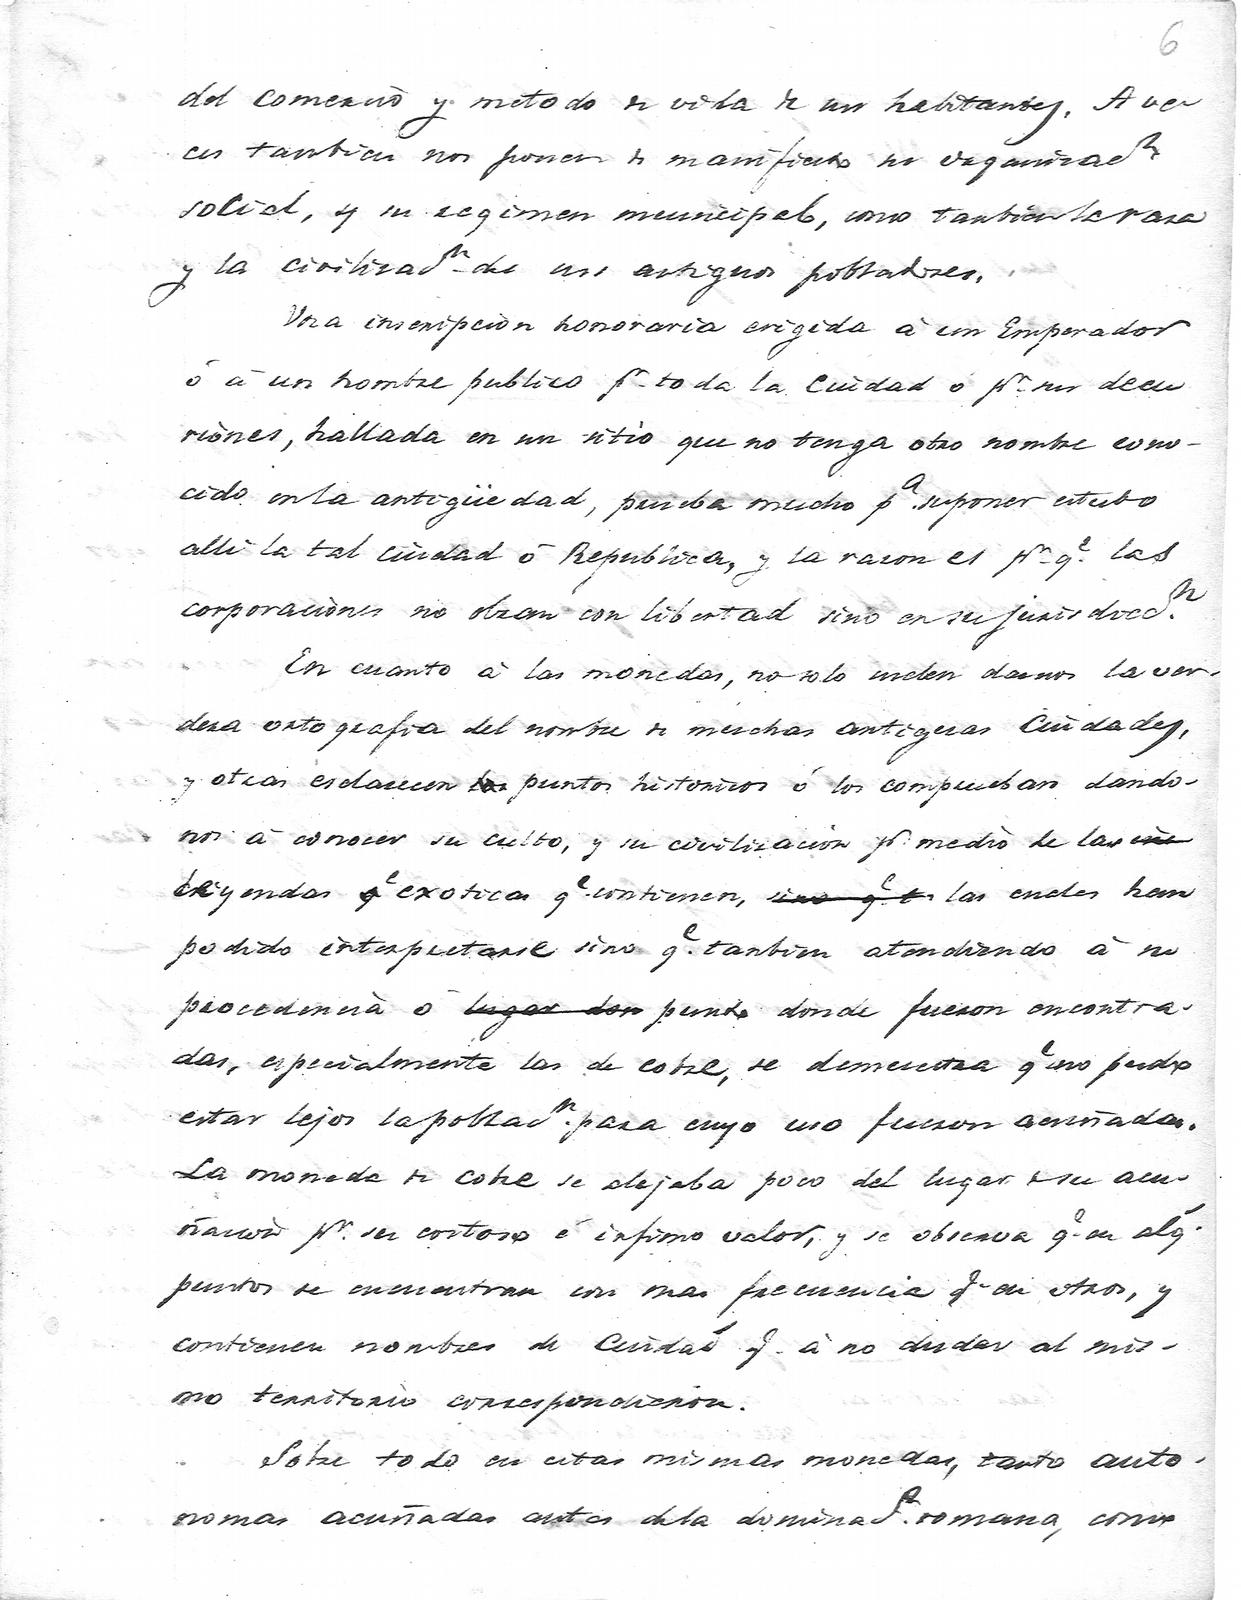 6
del comercio y metodo de vida de sus habitantes. A ve-
ces tambien nos ponen de manifiesto su organizacn
social, y su regimen municipal, como tambien la raza
y la civilizacn de sus antiguos pobladores.
Una inscripcion honoraria erigida á un Emperador
ó á un hombre publico pr toda la Ciudad ó pr sus decu
riones, hallada en un sitio que no tenga otro nombre cono-
cido en la antigüedad, prueba mucho pa suponer estubo
alli la tal ciudad ó Republica, y la razon es pr qe las
corporaciones no obran con libertad sino en su jurisdiccn.
En cuanto á las monedas, no solo suelen darnos la ver-
dera ortografia del nombre de muchas antiguas Ciudades,
y otras esclarecen los puntos historicos ó los comprueban dando-
nos á conocer su culto, y su civilizacion pr medio de las
leyendas exoticas qe contienen, las cuales han
podido interpretarse sino qe tambien atendiendo á su
procedencia ó lugar don punto donde fueron encontra-
das, especialmente las de cobre, se demuestra qe no pudo
estar lejos la poblacn para cuyo uso fueron acuñadas.
La moneda de cobre se alejaba poco del lugar de su acu-
ñacion pr su costoso é infimo valor, y se observa qe en algs
puntos se encuentran con mas frecuencia qe en otros, y
contienen nombres de Ciudads qe á no dudar al mis-
mo territorio correspondieron.
Sobre todo en estas mismas monedas, tanto auto-
nomas acuñadas antes de la dominacn romana, como